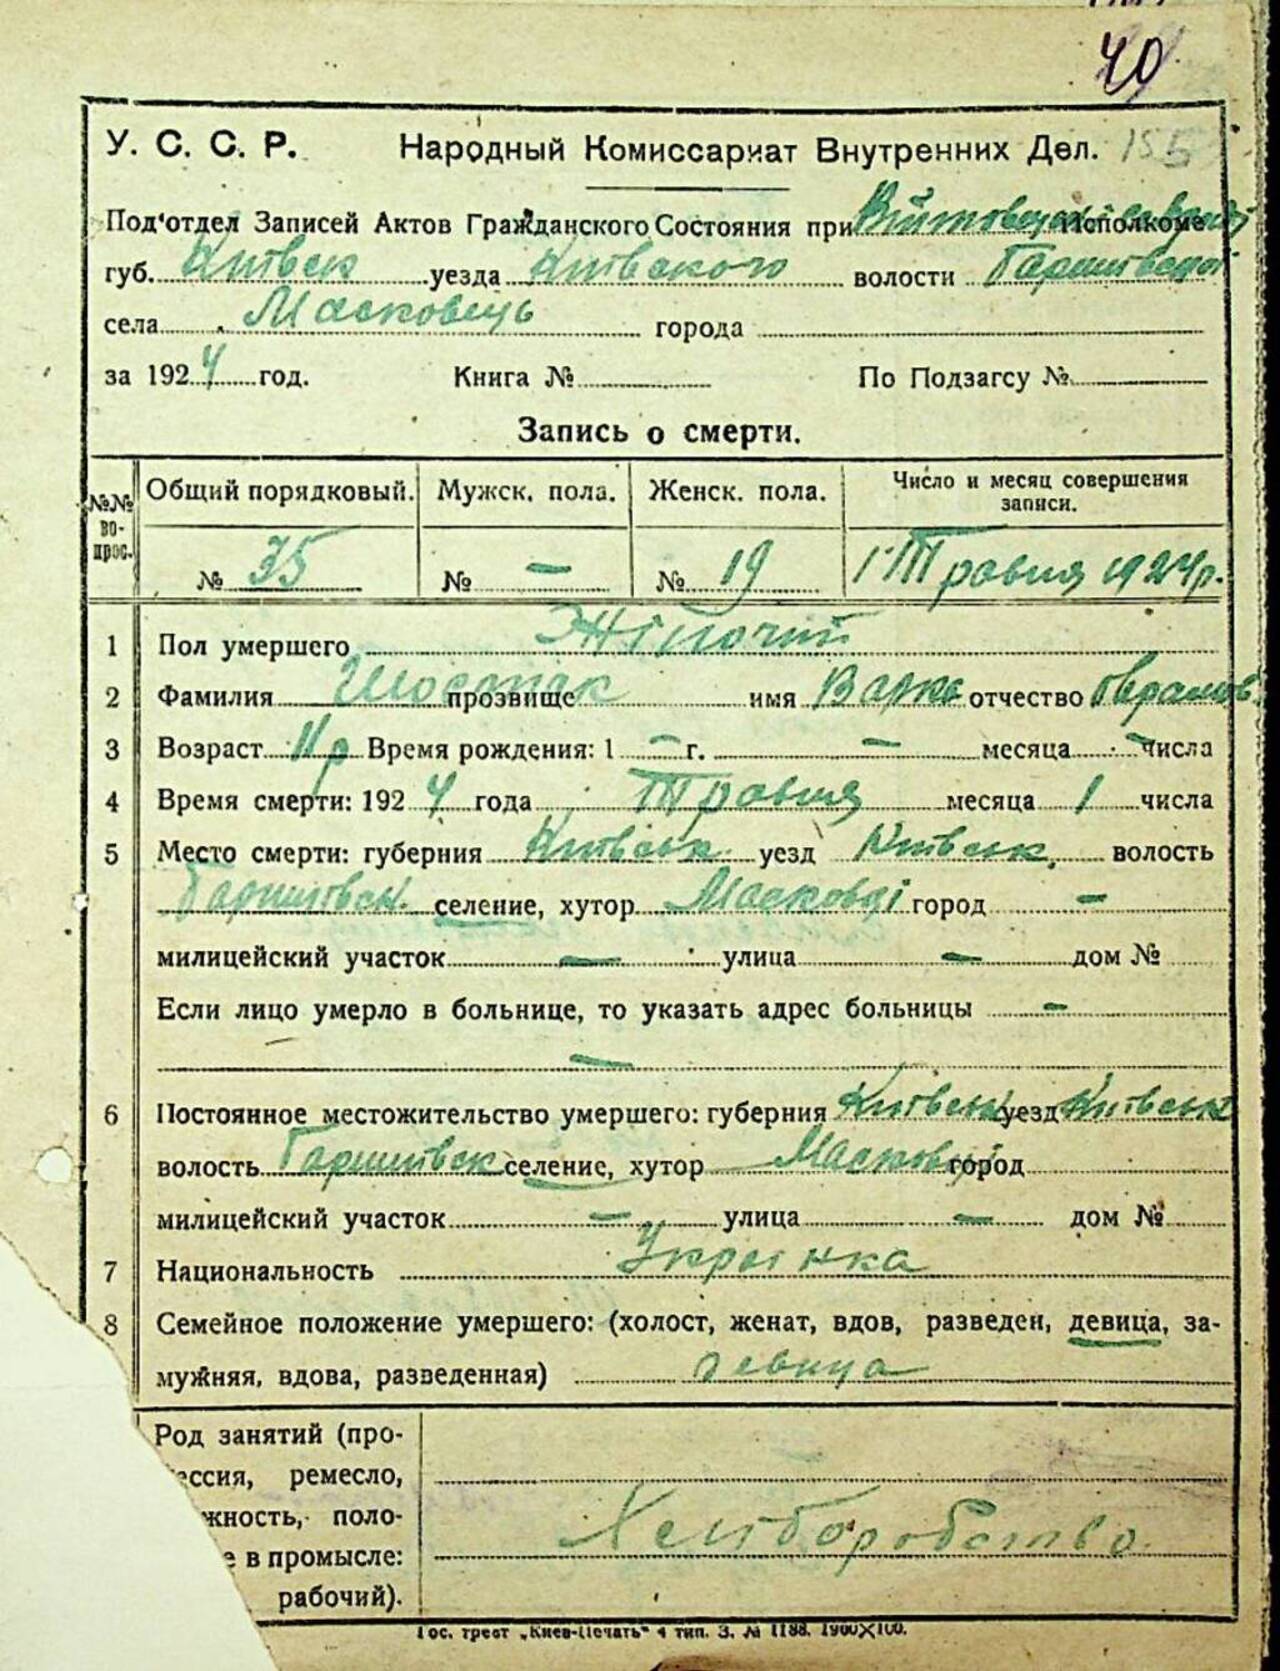 40
У. С. С. Р. Народный Комиссариат Внутренних Дел. 155
Под‘отдел Записей Актов Гражданского Состояния при Исполкоме
губ. Київськ уезда Київського волости
села Масковець города
за 1924 год. Книга № По Подзагсу №
Запись о смерти.
№№ вопрос. Общий порядковый. Мужск. пола. Женск. пола. Число и месяц совершения записи.
№ 35 № — № 19 1 Травня 1924р.
1 Пол умершего Жіночий
2 Фамилия Шостак прозвище имя Варка отчество
3 Возраст 11 р Время рождения: 1 — г. — месяца — числа
4 Время смерти: 1924 года Травня месяца 1 числа
5 Место смерти: губерния Київськ уезд Київськ. волость
селение, хутор Масковці город —
милицейский участок — улица — дом №
Если лицо умерло в больнице, то указать адрес больницы —
—
6 Постоянное местожительство умершего: губерния Київськ уезд Київськ
волость селение, хутор Масковці город
милицейский участок — улица — дом №
7 Национальность Украінка
8 Семейное положение умершего: (холост, женат, вдов, разведен, девица, за-
мужняя, вдова, разведенная) девица
Род занятий (про-
ессия, ремесло,
жность, поло-
е в промысле:
рабочий). Хліборобство.
Гос. трест „Киев-Печать“ 4 тип. З. № 1188. 1900×100.